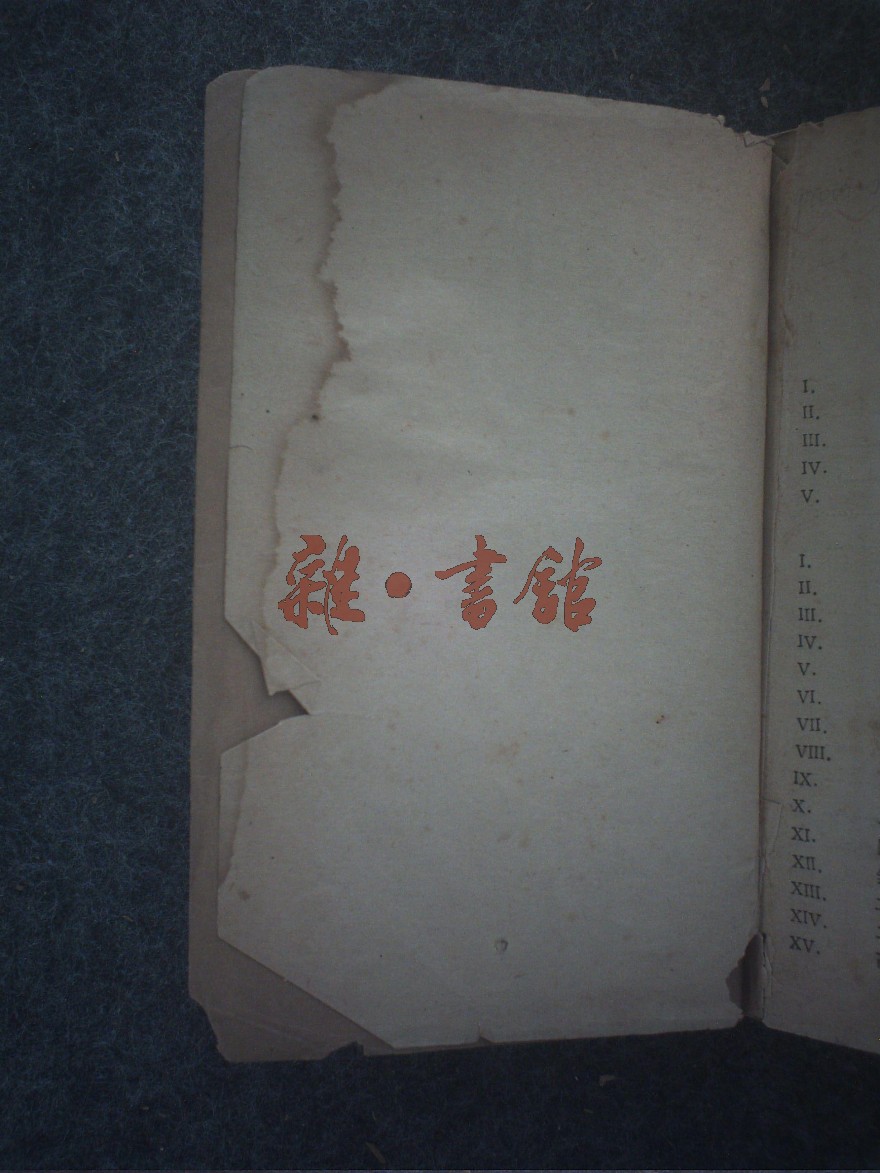 雜·書館
I.
II.
III.
IV.
V.
I.
II.
III.
IV.
V.
VI.
VII.
VIII.
IX.
X.
XI.
XII.
XIII.
XIV.
XV.